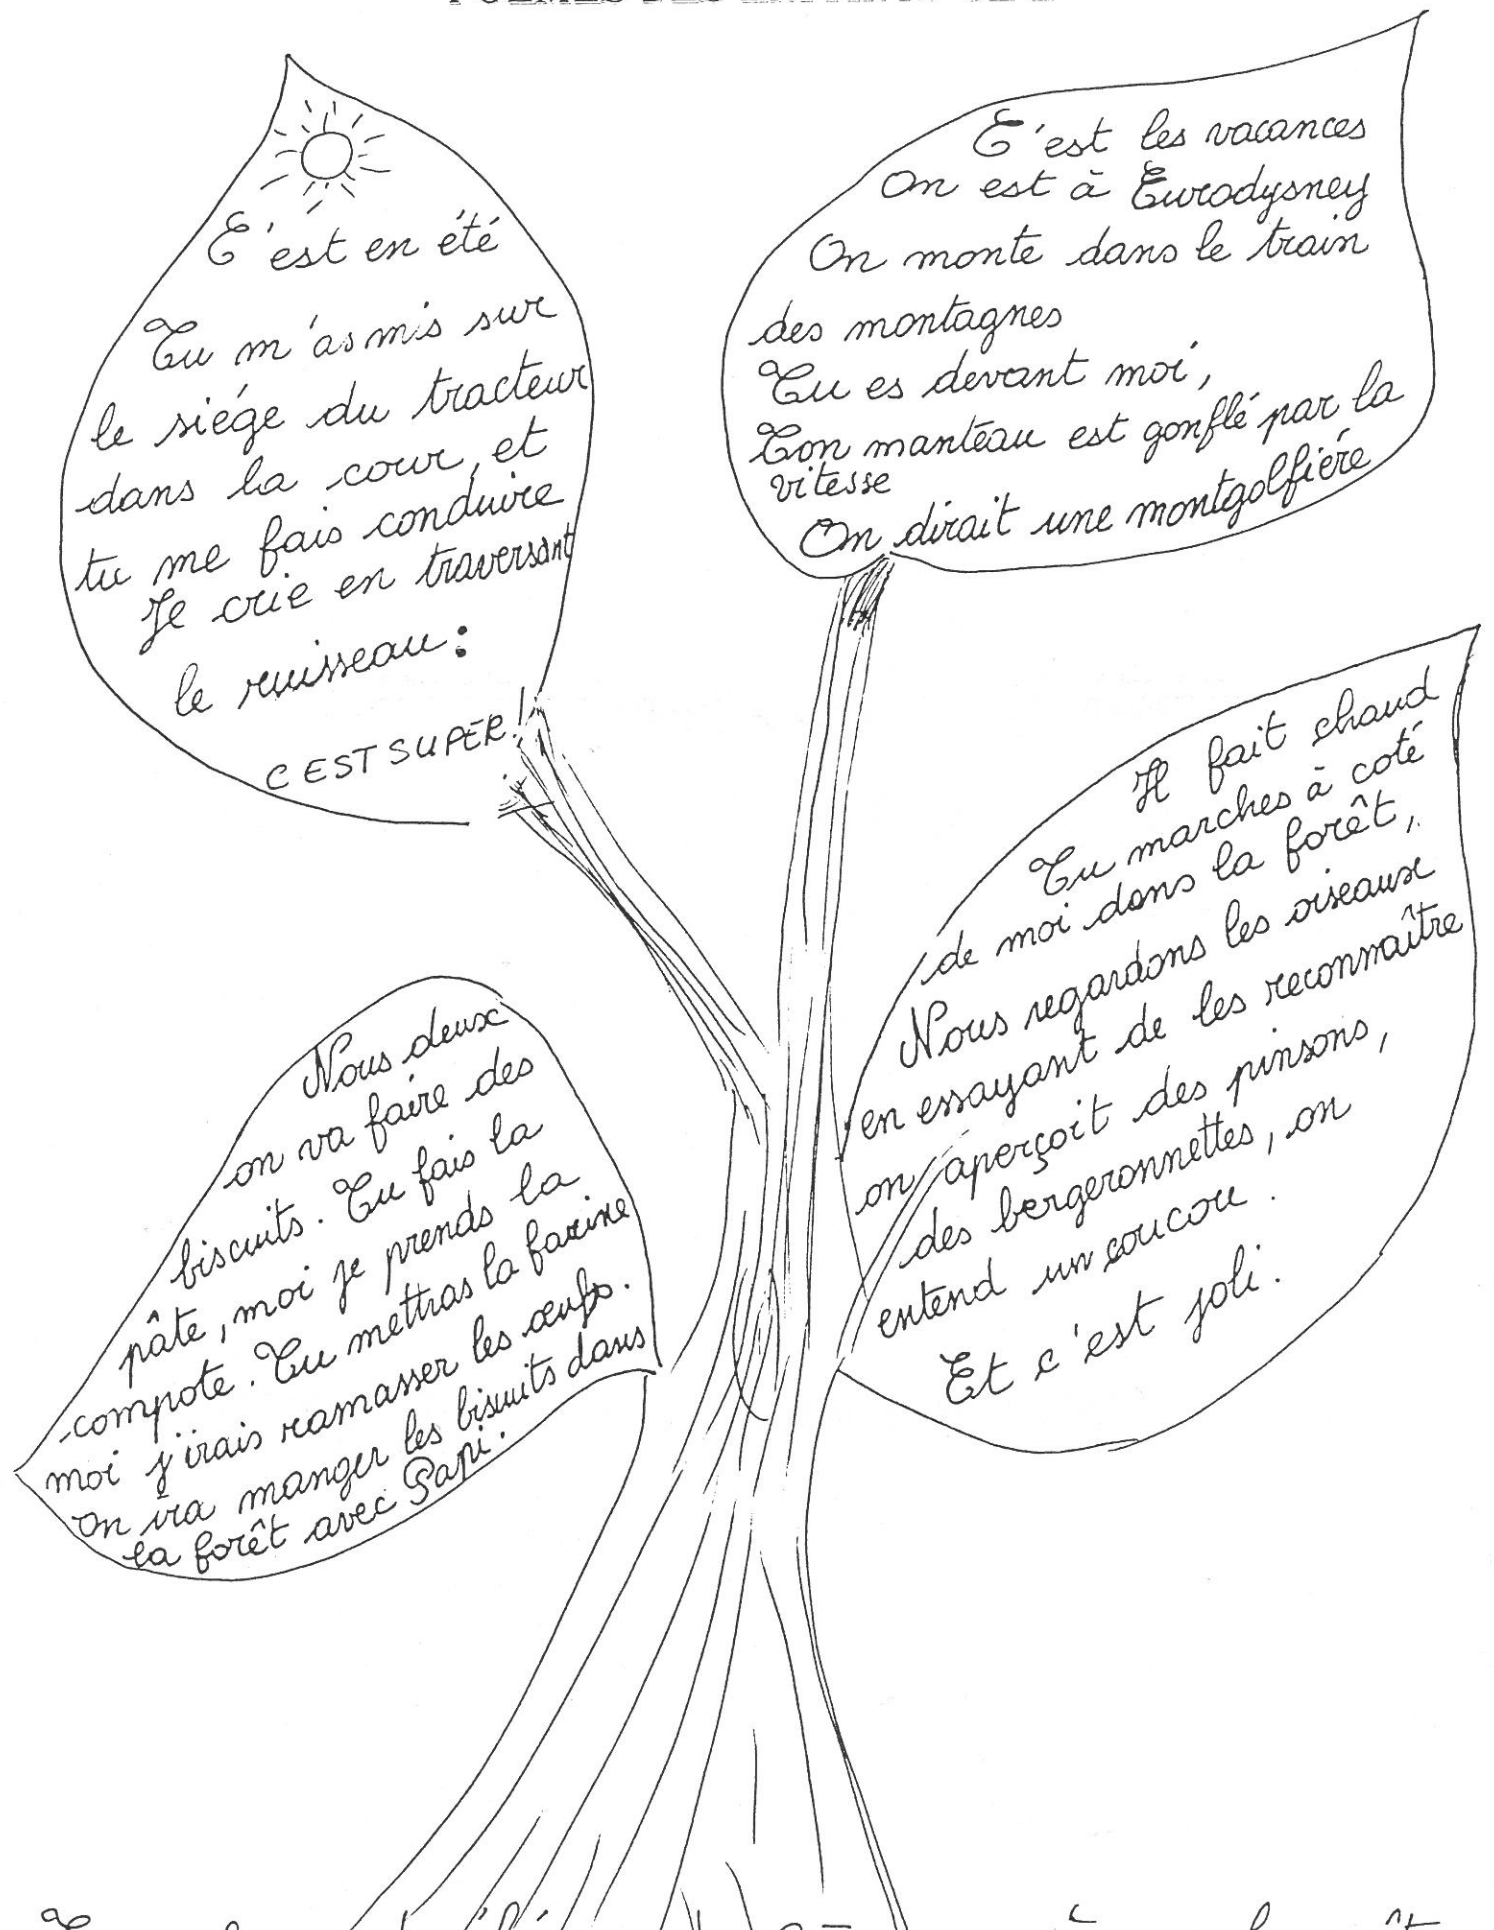 C'est en été
Tu m'as mis sur
le siége du tracteur
dans la cour, et
tu me fais conduire
Je crie en traversant
le ruisseau :
C EST SUPER !
C'est les vacances
On est à Eurodysney
On monte dans le train
des montagnes
Tu es devant moi,
Ton manteau est gonflé par la
vitesse
On dirait une montgolfiére
Il fait chaud
Tu marches à coté
de moi dans la forêt,
Nous regardons les oiseaux
en essayant de les reconnaître
on aperçoit des pinsons,
des bergeronnettes, on
entend un coucou.
Et c'est joli.
Nous deux
on va faire des
biscuits. Tu fais la
pâte, moi je prends la
compote. Tu mettras la farine
moi j'irais ramasser les œufs.
On ira manger les biscuits dans
la forêt avec Papi.